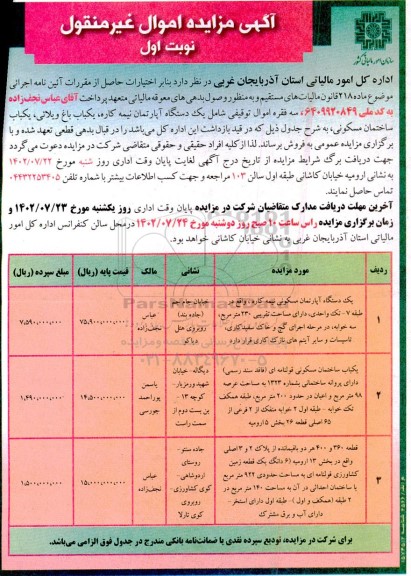 آگهی مزایده اموال غیرمنقول
نوبت اول
سازمان امور مالیاتی کشور
اداره کل امور مالیاتی استان آذربایجان غربی در نظر دارد بنابر اختیارات حاصل از مقررات آئین نامه اجرائی
موضوع ماده ۲۱۸ قانون مالیات‌های مستقیم و به منظور وصول بدهی های معوقه مالیاتی متعهد پرداخت آقای عباس نجف‌زاده
به کد ملی ۶۴۰۹۹۲۰۸۴۹، سه فقره اموال توقیفی شامل یک دستگاه آپارتمان نیمه کاره، یکباب باغ ویلائی، یکباب
ساختمان مسکونی، به شرح جدول ذیل که در قید بازداشت این اداره کل می‌باشد را در قبال بدهی قطعی تعهد شده و با
برگزاری مزایده عمومی به فروش برساند. لذا از کلیه افراد حقیقی و حقوقی متقاضی شرکت در مزایده دعوت می گردد
جهت دریافت برگ شرایط مزایده از تاریخ درج آگهی لغایت پایان وقت اداری روز شنبه مورخ ۱۴۰۲/۰۷/۲۲
به نشانی ارومیه خیابان کاشانی طبقه اول سالن ۱۰۳ مراجعه و جهت کسب اطلاعات بیشتر با شماره تلفن ۰۴۴۳۲۲۵۳۴۰۵
تماس حاصل نمایند.
آخرین مهلت دریافت مدارک متقاضیان شرکت در مزایده پایان وقت اداری روز یکشنبه مورخ ۱۴۰۲/۰۷/۲۳ و
زمان برگزاری مزایده راس ساعت ۱۰ صبح روز دوشنبه مورخ ۱۴۰۲/۰۷/۲۴ در محل سالن کنفرانس اداره کل امور
مالیاتی استان آذربایجان غربی به نشانی خیابان کاشانی خواهد بود.
ردیف مورد مزایده نشانی مالک قیمت پایه (ریال) مبلغ سپرده (ریال)
۱
یک دستگاه آپارتمان مسکونی نیمه کاره واقع در
طبقه ۷ - تک واحدی، دارای مساحت تقریبی ۲۳۰ متر مربع،
سه خوابه، در مرحله اجرای گچ و خاک سفیدکاری،
تاسیسات و سایر آیتم های نازک کاری قرار دارد
خیابان جام جم
(جاده بند)
روبروی هتل
دیاکو
عباس
نجف‌زاده
۷۵،۹۰۰،۰۰۰،۰۰۰
۷،۵۹۰،۰۰۰،۰۰۰
۲
یکباب ساختمان مسکونی قولنامه ای (فاقد سند رسمی)
دارای پروانه ساختمانی بشماره ۱۳۲۳ به مساحت عرصه
۹۸ متر مربع و اعیان در حدود ۲۰۰ متر مربع، طبقه همکف
تک خوابه - طبقه اول ۲ خوابه منفک از ۲ فرعی از
۶۵ اصلی قطعه ۲۶ بخش ۵ ارومیه
دیگاله - خیابان
شهید ورمزیار-
کوچه ۱۳ -
بن بست دوم از
سمت راست
یاسمن
پوراحمد
جورسی
۱۴،۵۰۰،۰۰۰،۰۰۰
۱،۴۹۰،۰۰۰،۰۰۰
۳
قطعه ۳۶۰ و ۴۰۰ هر دو باقیمانده از پلاک ۲ و ۳ اصلی
واقع در بخش ۱۳ ارومیه (۶ دانگ یک قطعه زمین
کشاورزی قولنامه ای به مساحت حدودی ۹۲۲ متر مربع
با ساختمان احداثی در آن به مساحت ۱۴۰ متر مربع در
۲ طبقه (همکف و اول) - طبقه اول دارای استخر -
دارای آب و برق مشترک
جاده سنتو -
روستای
اردوشاهی-
کوی کشاورزی-
روبروی
کوی تارلا
عباس
نجف‌زاده
۱۵،۰۰۰،۰۰۰،۰۰۰
۱،۵۰۰،۰۰۰،۰۰۰
برای شرکت در مزایده، تودیع سپرده نقدی یا ضمانت‌نامه بانکی مندرج در جدول فوق الزامی می‌باشد.